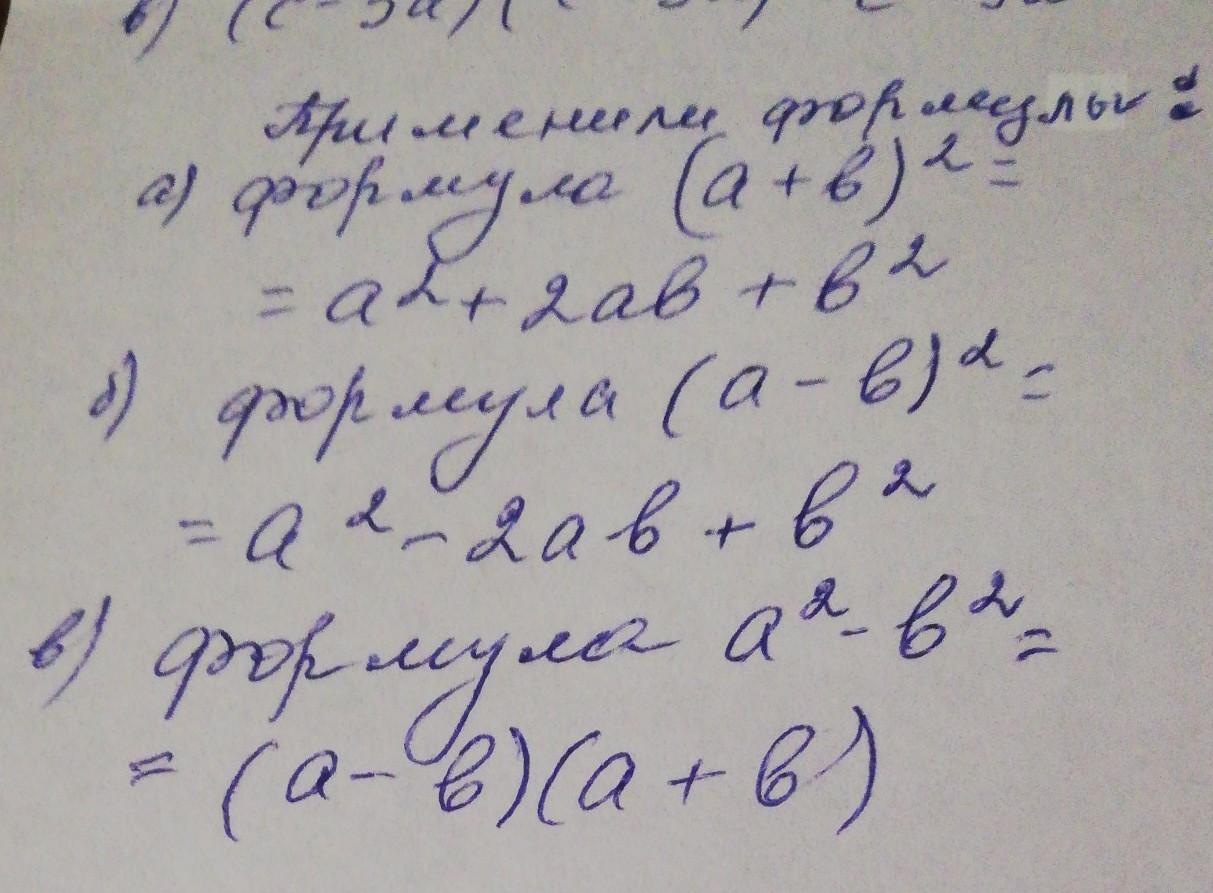 в) (c - 3a)(
Применили формулы:
а) формула (a + в)² =
= a² + 2aв + в²
б) формула (a - в)² =
= a² - 2aв + в²
в) формула a² - в² =
= (a - в)(a + в)